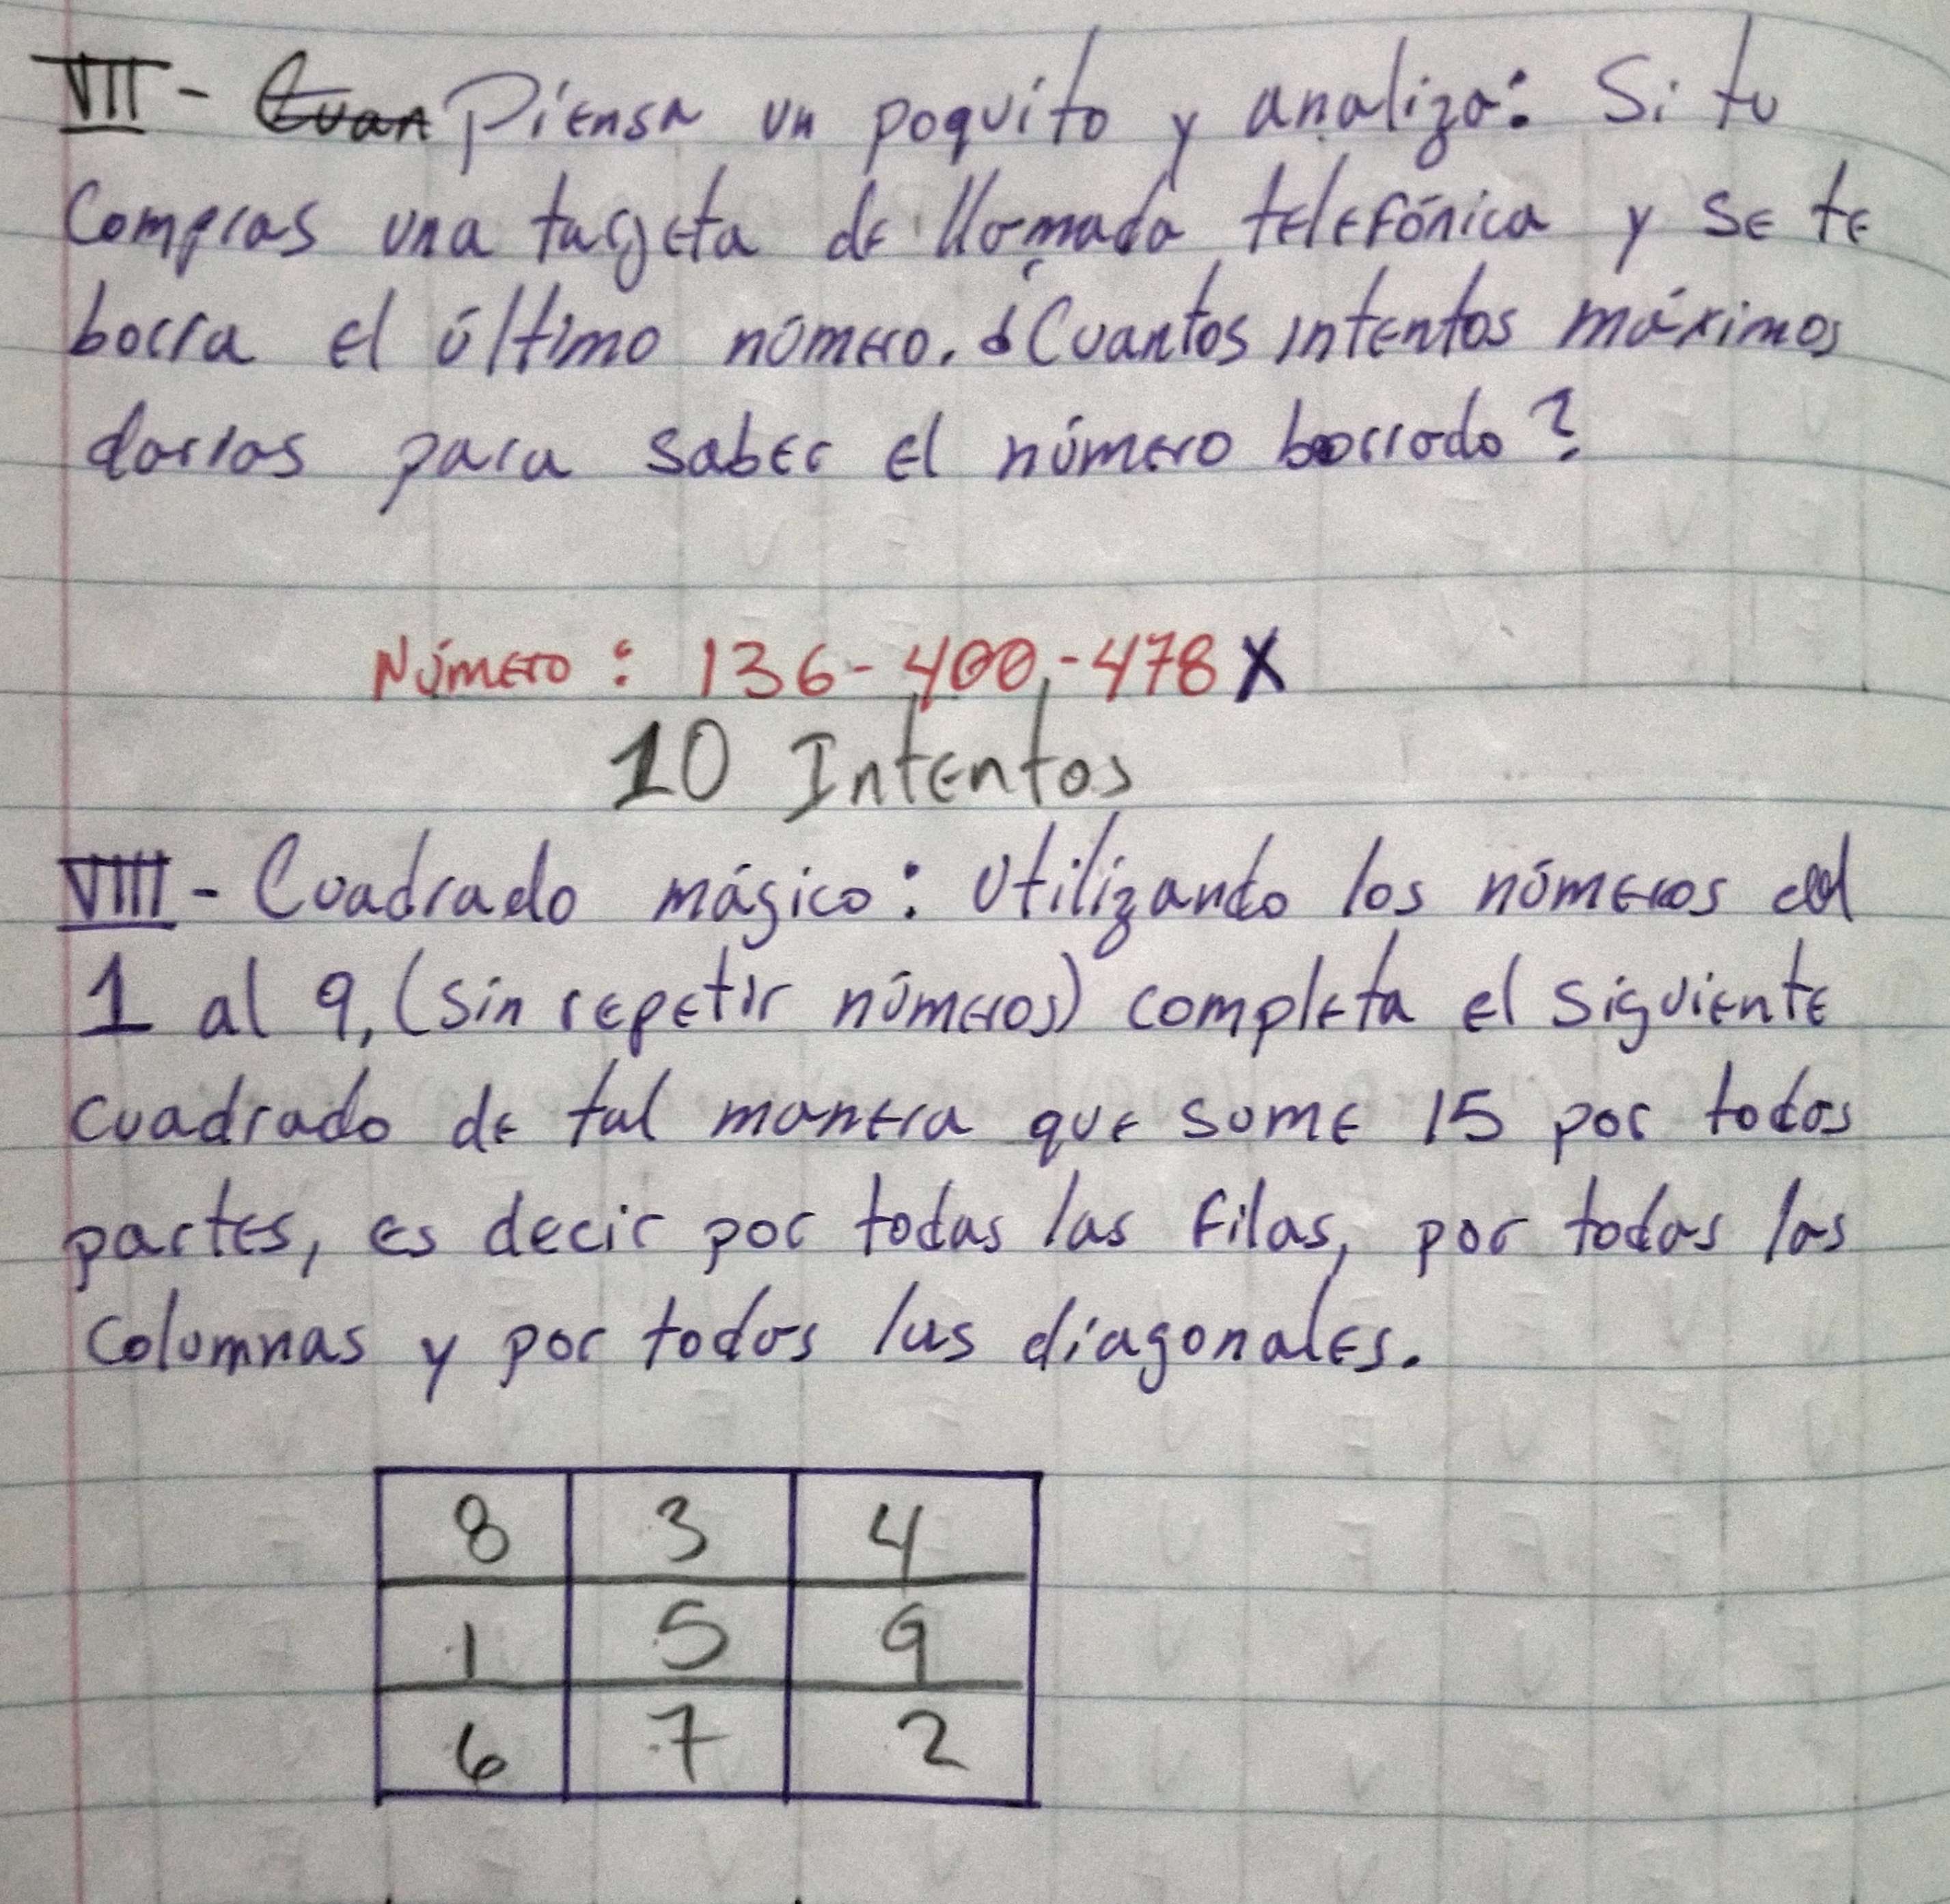 VII - Cuan Piensa un poquito y analiza: Si tu
Compras una targeta de llamada telefónica y se te
borra el último número. ¿Cuantos intentos máximos
darías para saber el número borrado?
Número: 136-400-478X
10 Intentos
VIII - Cuadrado mágico: Utilizando los números del
1 al 9, (sin repetir números) completa el siguiente
cuadrado de tal manera que sume 15 por todas
partes, es decir por todas las filas, por todas las
columnas y por todas las diagonales.
8 3 4
1 5 9
6 7 2